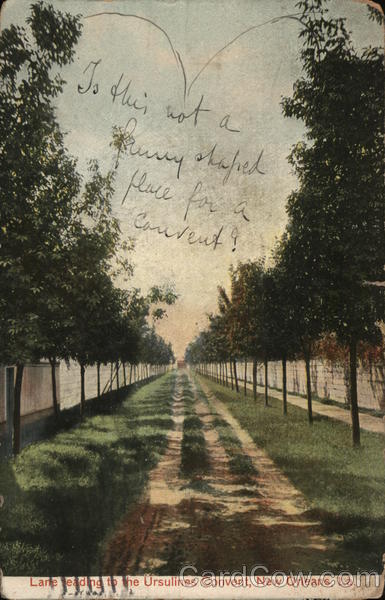 Is this not a
funny shaped
place for a
convent?
Lane leading to the Ursulines Convent, New Orleans, La.
CardCow.com